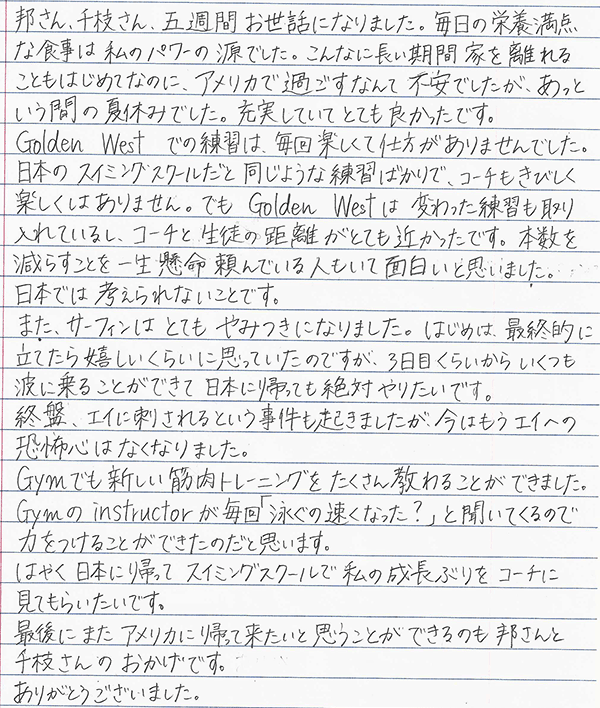 邦さん、千枝さん、五週間お世話になりました。毎日の栄養満点
な食事は私のパワーの源でした。こんなに長い期間家を離れる
こともはじめてなのに、アメリカで過ごすなんて不安でしたが、あっと
いう間の夏休みでした。充実していてとても良かったです。
Golden West での練習は、毎回楽しくて仕方がありませんでした。
日本のスイミングスクールだと同じような練習ばかりで、コーチもきびしく
楽しくはありません。でも Golden West は変わった練習も取り
入れているし、コーチと生徒の距離がとても近かったです。本数を
減らすことを一生懸命頼んでいる人もいて面白いと思いました。
日本では考えられないことです。
また、サーフィンはとてもやみつきになりました。はじめは、最終的に
立てたら嬉しいくらいに思っていたのですが、3日目くらいからいくつも
波に乗ることができて日本に帰っても絶対やりたいです。
終盤、エイに刺されるという事件も起きましたが、今はもうエイへの
恐怖心はなくなりました。
Gymでも新しい筋肉トレーニングをたくさん教わることができました。
Gymの instructor が毎回「泳ぐの速くなった？」と聞いてくるので
力をつけることができたのだと思います。
はやく日本に帰ってスイミングスクールで私の成長ぶりをコーチに
見てもらいたいです。
最後にまたアメリカに帰って来たいと思うことができるのも邦さんと
千枝さんのおかげです。
ありがとうございました。